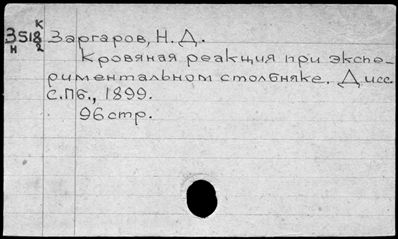 К
З518 Заргаров, Н. Д.
н 2
Кровяная реакция при экспе-
риментальном столбняке. Дисс.
С.Пб., 1899.
96 стр.